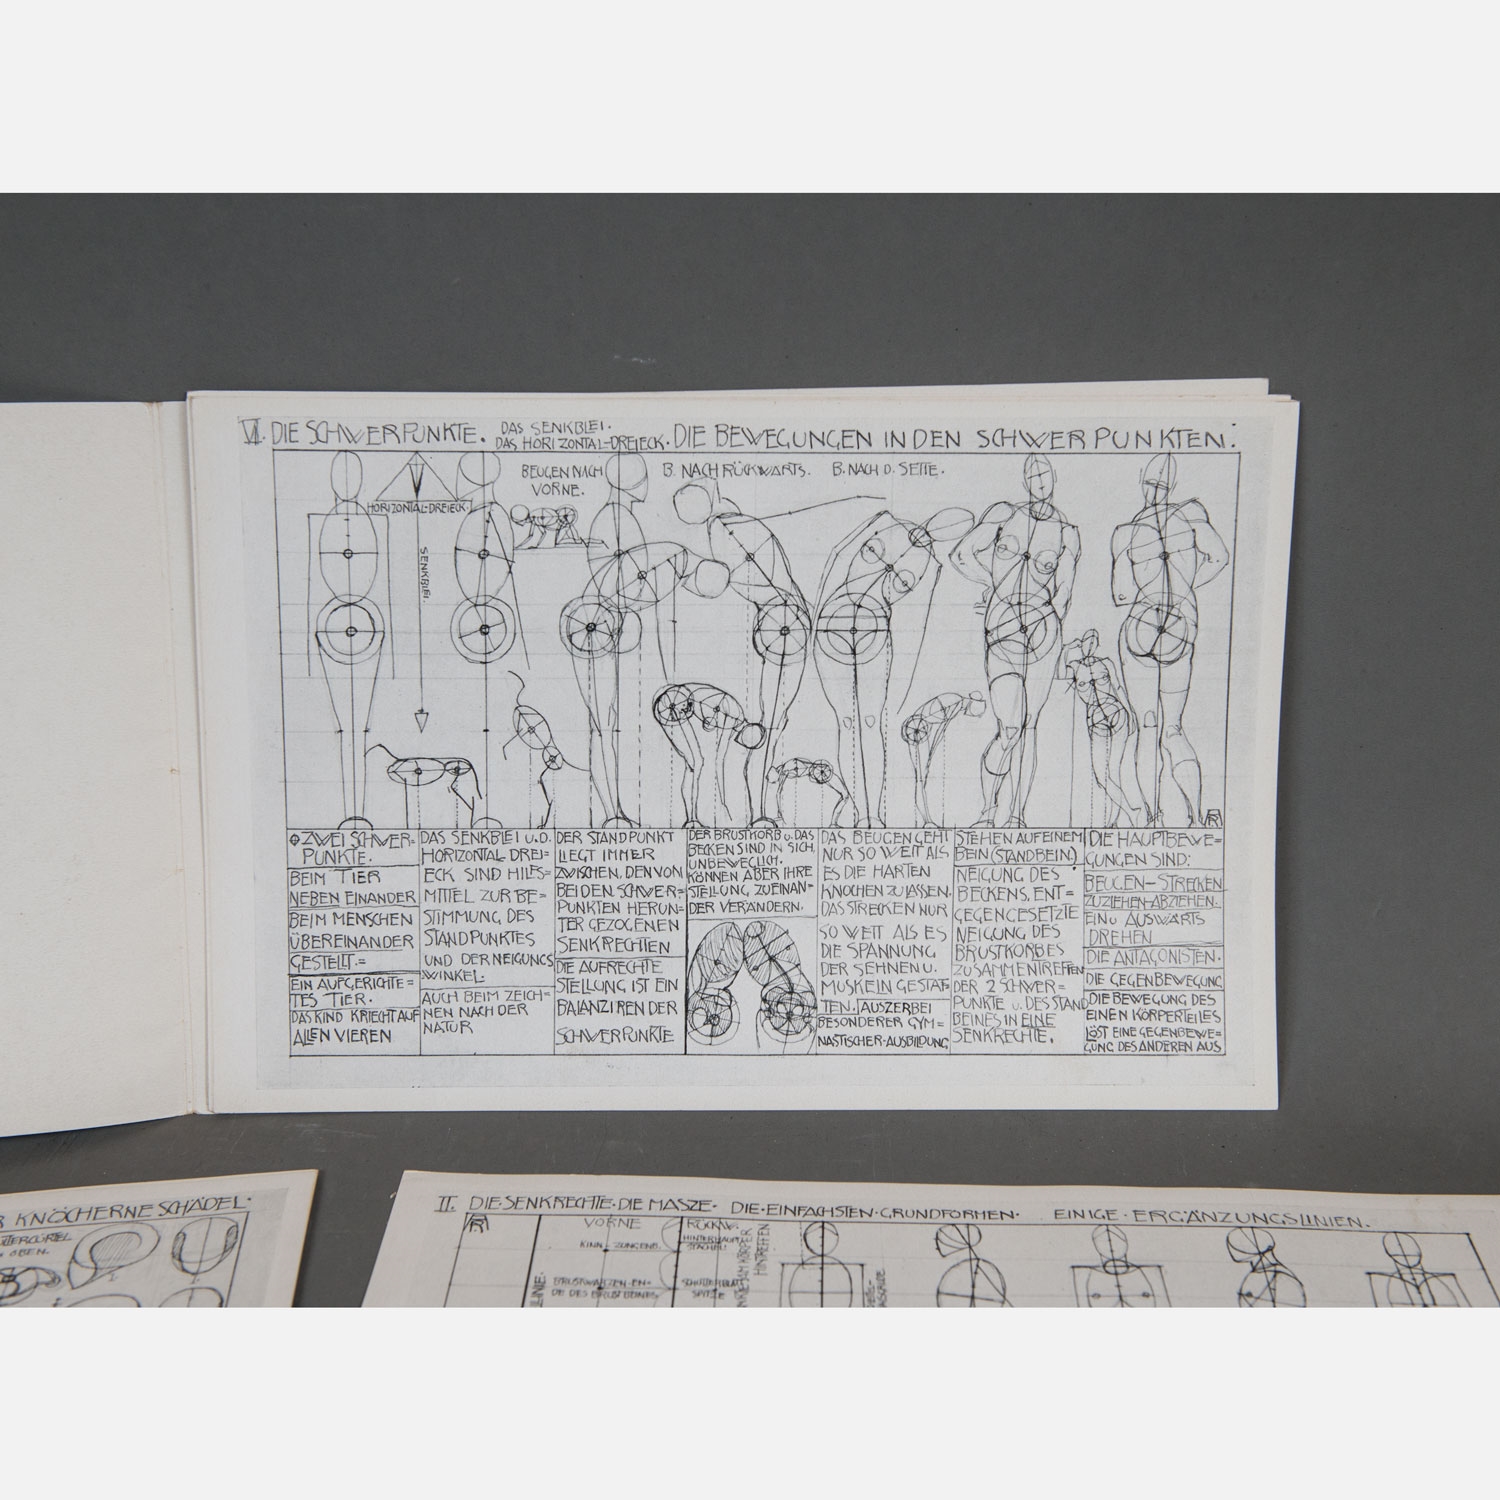 VII. DIE SCHWERPUNKTE. DAS SENKBLEI.
DAS HORIZONTAL-DREIECK. DIE BEWEGUNGEN IN DEN SCHWERPUNKTEN.
BEUGEN NACH
VORNE.
B. NACH RÜCKWÄRTS. B. NACH D. SEITE.
HORIZONTAL-DREIECK.
SENKBLEI.
ZWEI SCHWER=
PUNKTE.
BEIM TIER
NEBEN EINANDER
BEIM MENSCHEN
ÜBEREINANDER
GESTELLT.=
EIN AUFGERICHTE=
TES TIER.
DAS KIND KRIECHT AUF
ALLEN VIEREN
DAS SENKBLEI U.D.
HORIZONTAL DREI=
ECK SIND HILFS=
MITTEL ZUR BE=
STIMMUNG DES
STANDPUNKTES
UND DER NEIGUNGS
WINKEL.
AUCH BEIM ZEICH=
NEN NACH DER
NATUR
DER STANDPUNKT
LIEGT IMMER
ZWISCHEN, DEN VON
BEIDEN SCHWER=
PUNKTEN HERUN=
TER GEZOGENEN
SENKRECHTEN
DIE AUFRECHTE
STELLUNG IST EIN
BALANZIREN DER
SCHWERPUNKTE
DER BRUSTKORB U. DAS
BECKEN SIND IN SICH,
UNBEWEGLICH.
KÖNNEN ABER IHRE
STELLUNG, ZUEINAN=
DER VERÄNDERN.
DAS BEUGEN GEHT
NUR SO WEIT ALS
ES DIE HARTEN
KNOCHEN ZULASSEN.
DAS STRECKEN NUR
SO WEIT ALS ES
DIE SPANNUNG
DER SEHNEN U.
MUSKELN GESTAT=
TEN. AUSZER BEI
BESONDERER GYM=
NASTISCHER-AUSBILDUNG
STEHEN AUF EINEM
BEIN (STANDBEIN)
NEIGUNG DES
BECKENS, ENT=
GEGENGESETZTE
NEIGUNG DES
BRUSTKORBES
ZUSAMMENTREFFEN
DER 2 SCHWER=
PUNKTE U. DES STAND
BEINES IN EINE
SENKRECHTE.
DIE HAUPTBEWE=
GUNGEN SIND:
BEUGEN-STRECKEN
ZUZIEHEN-ABZIEHEN.
EIN U AUSWÄRTS
DREHEN
DIE ANTAGONISTEN.
DIE GEGENBEWEGUNG
DIE BEWEGUNG DES
EINEN KÖRPERTEILES
LÖST EINE GEGENBEWE=
GUNG DES ANDEREN AUS
R KNÖCHERNE SCHÄDEL.
OBEN.
II. DIE SENKRECHTE. DIE MASZE. DIE EINFACHSTEN GRUNDFORMEN. EINIGE ERGÄNZUNGSLINIEN.
VORNE
RÜCKW.
KINN - ZUNGENB.
HINTERHAUPT
STACHEL
BRUSTWARZEN-EN-
DE DES BRUSTBEINES
SCHULTERBLATT
SPITZE
HINTREFFEN